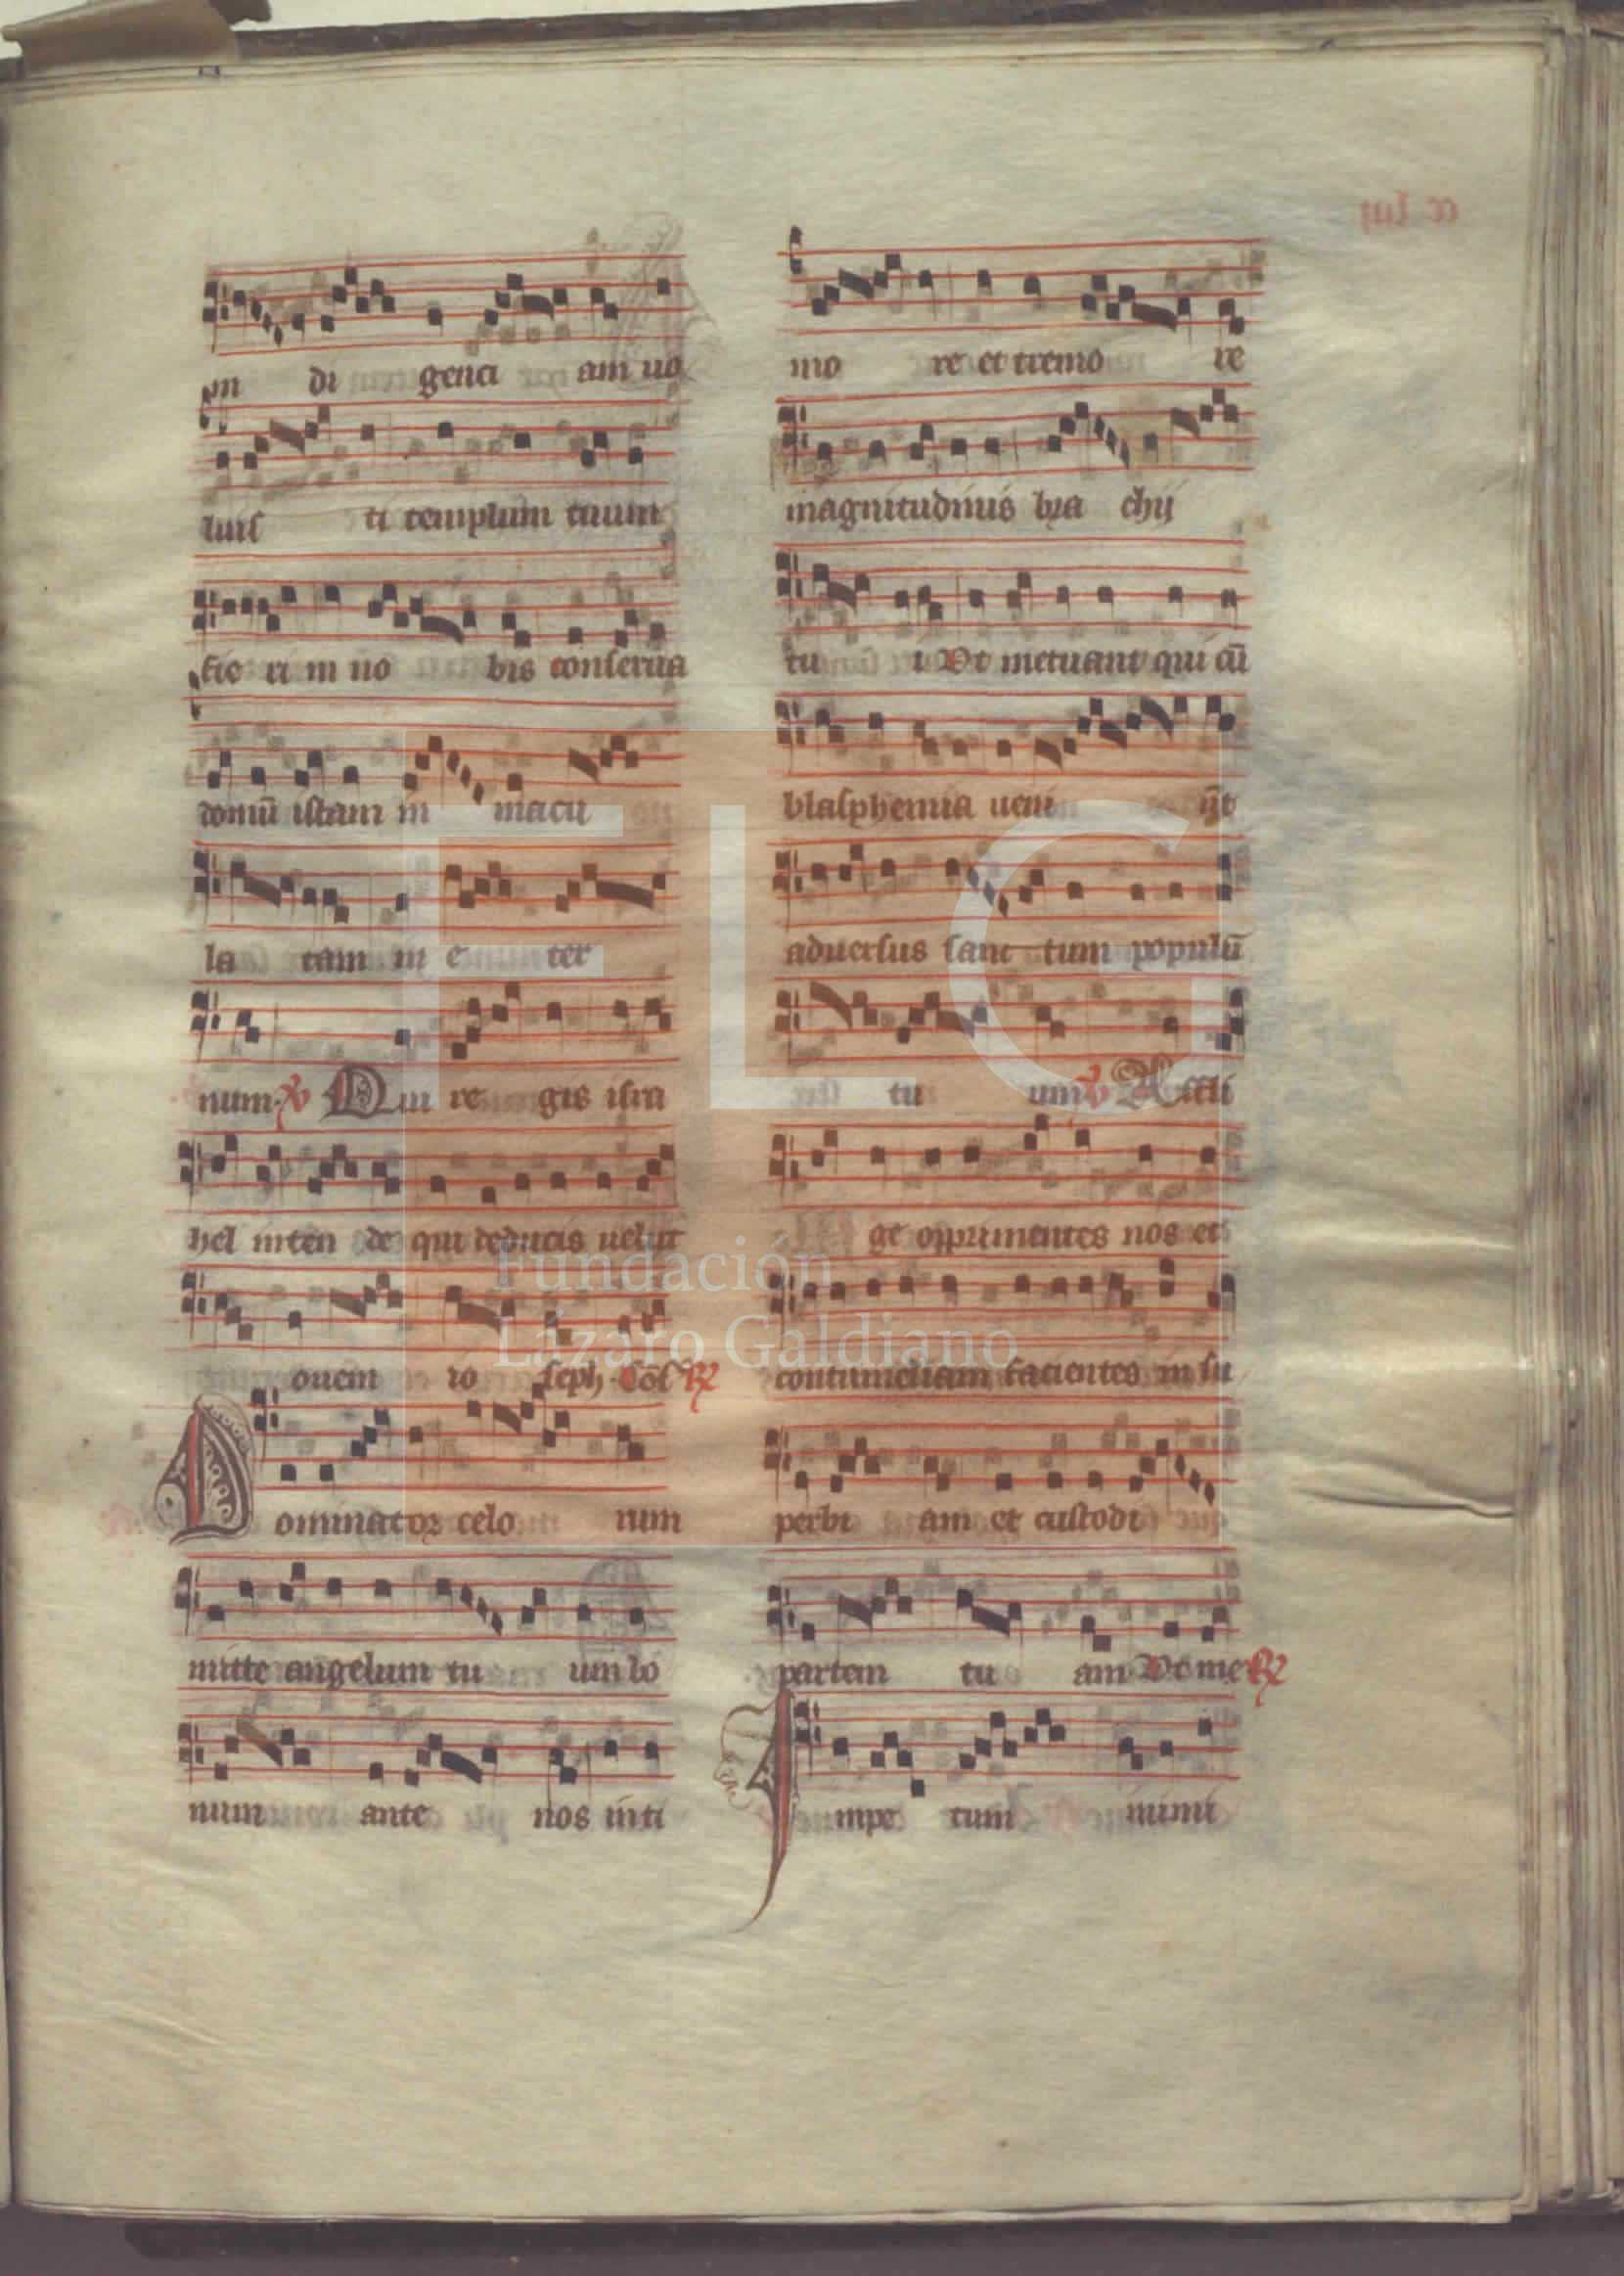 in di genci am uo
luis ti templum tuum
fie ri in no bis conserua
domū istam in macu
la tam in e ter
num. ℣ Qui re gis isra
hel inten de qui deducis uelut
ouem io seph. Cōs ℟
Dominator celo rum
mitte angelum tu um bo
num ante nos in ti
mo re et tremo re
magnitudinis bra chij
tu i Vt metuant qui cū
blasphemia ueni ūt
aduersus sanc tum populū
tu um ℣ Affli
ge opprimentes nos et
contumeliam facientes in su
perbi am et custodi
partem tu am Vt me ℟
Impe tum inimi
FLG
Fundación
Lázaro Galdiano